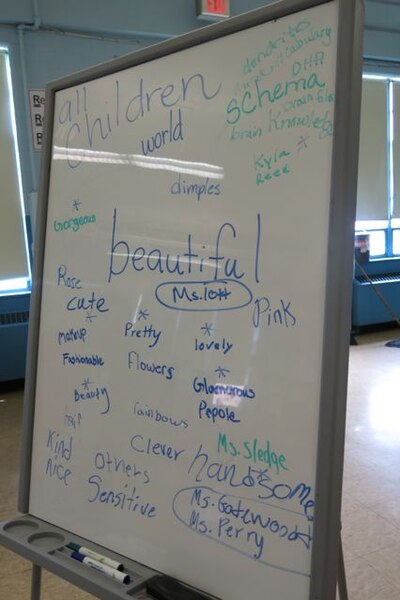 EXIT
all
children
world
dimples
dendrites
vocabulary
DHA
schema
brain Knowledge
Kyla
Reee
* Gorgeous
beautiful
Ms. lott
Rose
cute
Pink
* Makup
* Pretty
* lovely
Fashionable
flowers
* Glamorous
* Beauty
rainbows
Pepole
hair
Clever
Ms. Sledge
Kind
nice
Others
handsome
Sensitive
Ms. Gatewood
Ms. Perry